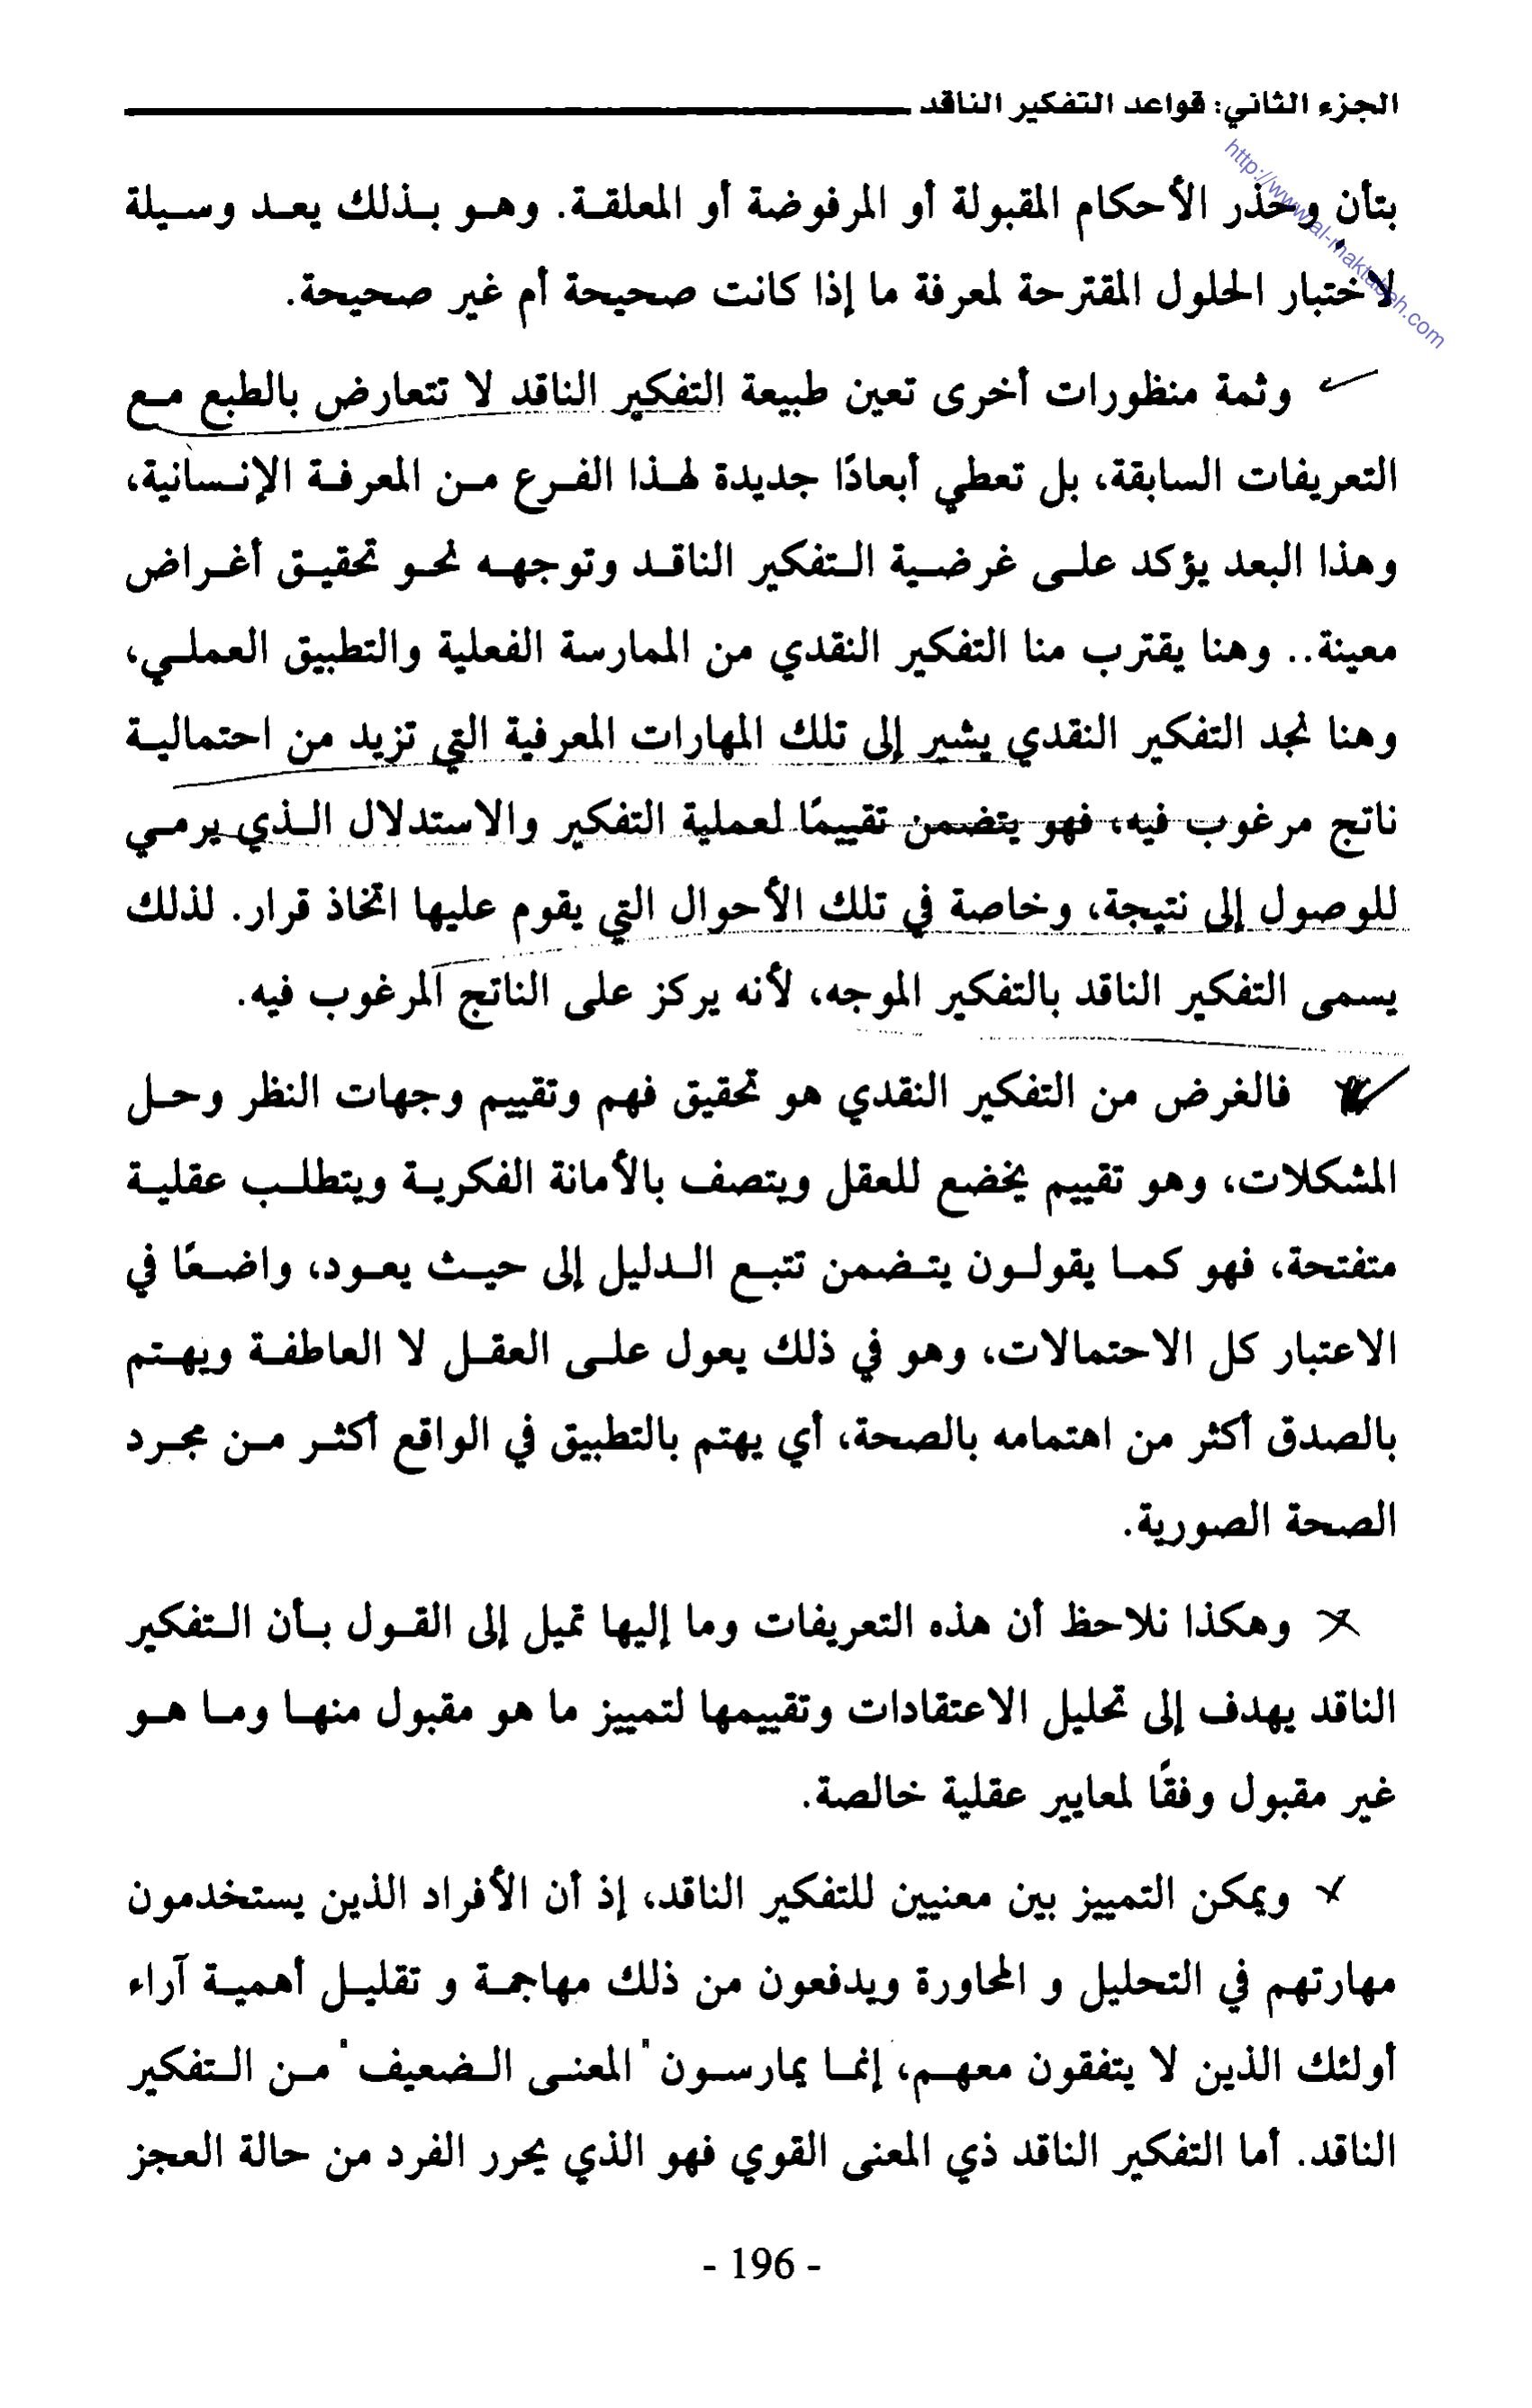 الجزء الثاني: قواعد التفكير الناقد
http://www.al-maktabeh.com
بتأنٍ وحذر الأحكام المقبولة أو المرفوضة أو المعلقة. وهو بذلك يعد وسيلة
لاختبار الحلول المقترحة لمعرفة ما إذا كانت صحيحة أم غير صحيحة.
وثمة منظورات أخرى تعين طبيعة التفكير الناقد لا تتعارض بالطبع مع
التعريفات السابقة، بل تعطي أبعادًا جديدة لهذا الفرع من المعرفة الإنسانية،
وهذا البعد يؤكد على غرضية التفكير الناقد وتوجهه نحو تحقيق أغراض
معينة.. وهنا يقترب منا التفكير النقدي من الممارسة الفعلية والتطبيق العملي،
وهنا نجد التفكير النقدي يشير إلى تلك المهارات المعرفية التي تزيد من احتمالية
ناتج مرغوب فيه، فهو يتضمن تقييمًا لعملية التفكير والاستدلال الذي يرمي
للوصول إلى نتيجة، وخاصة في تلك الأحوال التي يقوم عليها اتخاذ قرار. لذلك
يسمى التفكير الناقد بالتفكير الموجه، لأنه يركز على الناتج المرغوب فيه.
فالغرض من التفكير النقدي هو تحقيق فهم وتقييم وجهات النظر وحل
المشكلات، وهو تقييم يخضع للعقل ويتصف بالأمانة الفكرية ويتطلب عقلية
متفتحة، فهو كما يقولون يتضمن تتبع الدليل إلى حيث يعود، واضعًا في
الاعتبار كل الاحتمالات، وهو في ذلك يعول على العقل لا العاطفة ويهتم
بالصدق أكثر من اهتمامه بالصحة، أي يهتم بالتطبيق في الواقع أكثر من مجرد
الصحة الصورية.
وهكذا نلاحظ أن هذه التعريفات وما إليها تميل إلى القول بأن التفكير
الناقد يهدف إلى تحليل الاعتقادات وتقييمها لتمييز ما هو مقبول منها وما هو
غير مقبول وفقًا لمعايير عقلية خالصة.
ويمكن التمييز بين معنيين للتفكير الناقد، إذ أن الأفراد الذين يستخدمون
مهارتهم في التحليل و المحاورة ويدفعون من ذلك مهاجمة و تقليل أهمية آراء
أولئك الذين لا يتفقون معهم، إنما يمارسون "المعنى الضعيف" من التفكير
الناقد. أما التفكير الناقد ذي المعنى القوي فهو الذي يحرر الفرد من حالة العجز
- 196 -